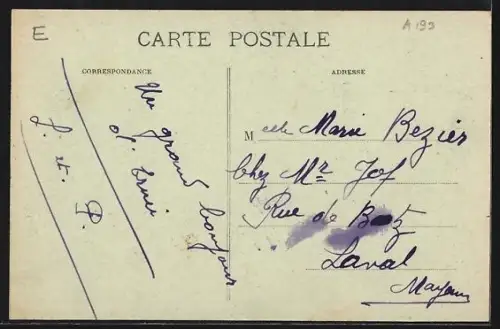 E
A 192
CARTE POSTALE
CORRESPONDANCE
ADRESSE
Un grand bonjour
d'Ernée
L. et P.
Melle Marie Bezier
Chez Mr Jof
Rue de
Laval
Mayenne